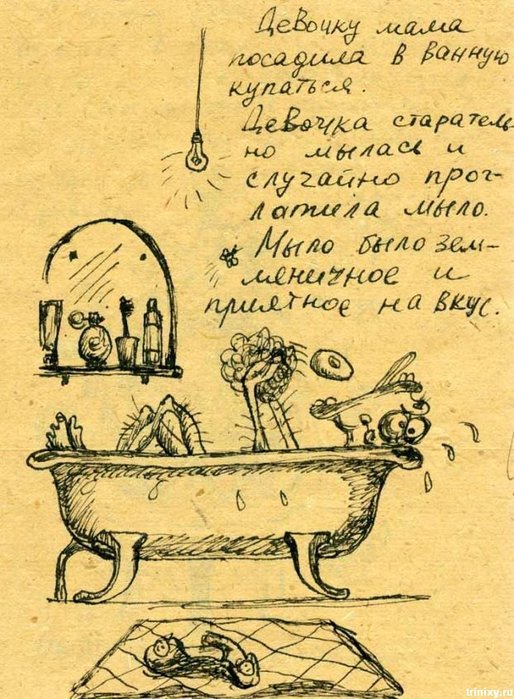 Девочку мама
посадила в ванную
купаться.
Девочка старатель-
но мылась и
случайно прог-
латила мыло.
Мыло было зем-
ляничное и
приятное на вкус.
trinixy.ru